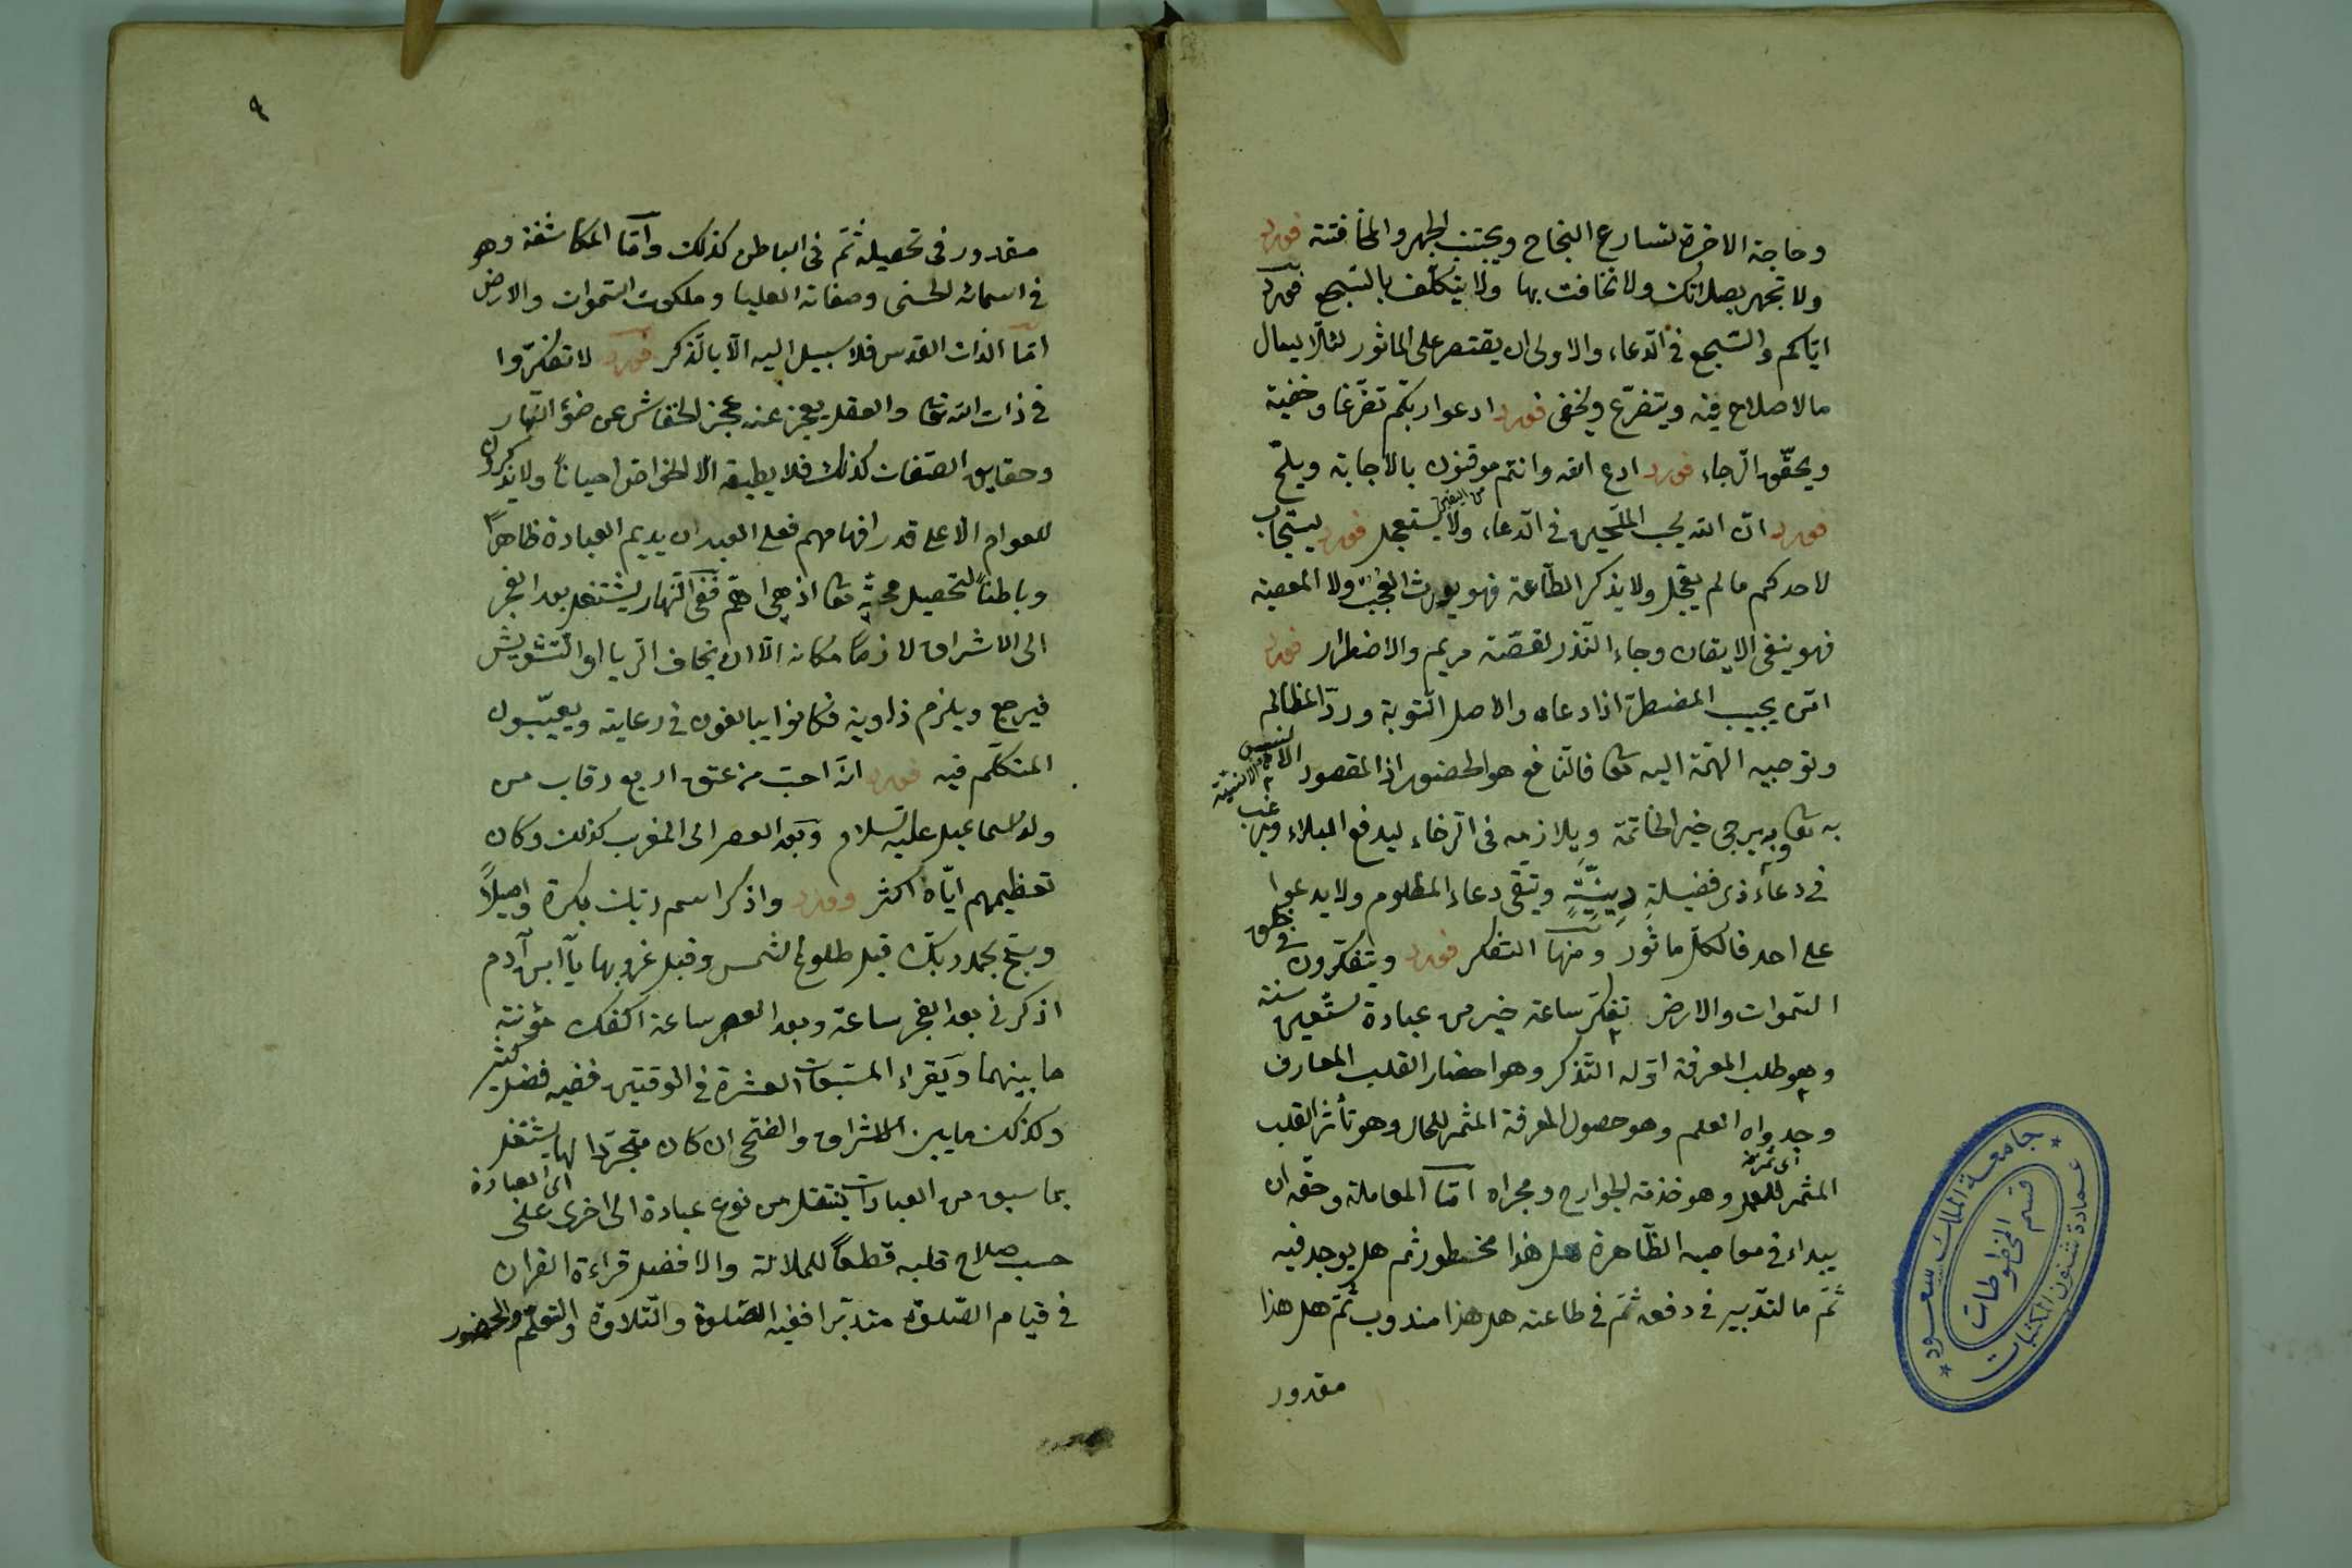 وحاجة الاخرة لتسارع النجاح ويجتنب الجهر والمخافتة فورد
ولا تجهر بصلاتك ولا تخافت بها ولا يتكلف بالسّجع فورد
ايّاكم والسّجع في الدّعاء والاولى ان يقتصر على الماثور لئلّا يسال
مالا صلاح فيه ويتضرّع ويخفى فورد ادعوا ربّكم تضرّعا وخفية
ويحقّق الرّجاء فورد ادع الله وانتم موقنون بالاجابة ويلحّ
فورد انّ الله يحب الملحّين في الدّعاء ولا يستعجل فورد يستجاب
لاحدكم مالم يعجّل ولا يذكر الطّاعة فهو يورث العجب ولا المعصية
فهو ينفى الايقان وجاء النّذر لقصّة مريم والاضطرار فورد
امّن يجيب المضطرّ اذا دعاه والاصل التّوبة وردّ المظالم
وتوجيه الهمّة اليه تعا فالنّافع هو الحضور اذ المقصود الانس
به تعا وبه يرجى خير الخاتمة ويلازمه في الرّخاء ليدفع البلاء ويرغب
في دعاء ذى فضيلة دينيّة ويتقى دعاء المظلوم ولا يدعوا
على احد فالكلّ ماثور ومنها التفكر فورد ويتفكّرون فى خلق
السّموات والارض تفكّر ساعة خير من عبادة ستّين سنة
وهو طلب المعرفة اوّله التّذكر وهو احضار القلب المعارف
وجدواه العلم وهو حصول المعرفة المثمر للحال وهو تأثر القلب
اى ثمرته
المثمر للعمل وهو خدمة الجوارح ومجراه امّا المعاملة وحقّه ان
يبداء فى معاصيه الظّاهرة هل هذا محظور ثم هل يوجد فيه
ثمّ ما لتدبير في دفعه ثمّ في طاعته هل هذا مندوب ثمّ هل هذا
مقدور
جامعة الملك سعود
قسم المخطوطات
عمادة شئون المكتبات
٩
مقدور فى تحصيله ثمّ فى الباطن كذلك وامّا المكاشفة وهو
في اسمائه الحسنى وصفاته العليا وملكوت السّموات والارض
امّا الذات القدس فلا سبيل اليه الّا بالذكر فورد لا تفكّروا
في ذات الله تعا والعقل يعجز عنه عجز الخفاش عن ضوء النّهار
وحقايق الصّفات كذلك فلا يطيقه الا الخواص احياناً ولا يذكرون
للعوام الا على قدر افهامهم فعلى العبد ان يديم العبادة ظاهراً
وباطناً لتحصيل محبّته تعا اذ هى اهمّ ففى النّهار يشتغل بعد الفجر
الى الاشراق لازماً مكانه الّا ان يخاف الرّيا او التّشويش
فيرجع ويلزم زاوية فكانوا يبالغون في رعايته ويعيّبون
المتكلّم فيه فورد انّه احبّ من عتق اربع رقاب من
ولد اسماعيل عليه السّلام وبعد العصر الى المغرب كذلك وكان
تعظيمهم ايّاه اكثر وورد واذكر اسم ربّك بكرة واصيلاً
وسبّح بحمد ربّك قبل طلوع الشمس وقبل غروبها يا ابن آدم
اذكرنى بعد الفجر ساعة وبعد العصر ساعة اكفك مؤنة
ما بينهما ويقراء المسبّعات العشرة في الوقتين ففيه فضل كثير
وكذلك ما بين الاشراق والضّحى ان كان متجرّدا لها يشتغل
اى العبادة
بما سبق من العبادات ينتقل من نوع عبادة الى اخرى على
حسب صلاح قلبه قطعاً للملالة والافضل قراءة القران
في قيام الصّلوة متدبّرا ففيه الصّلوة والتّلاوة والتعلّم والحضور